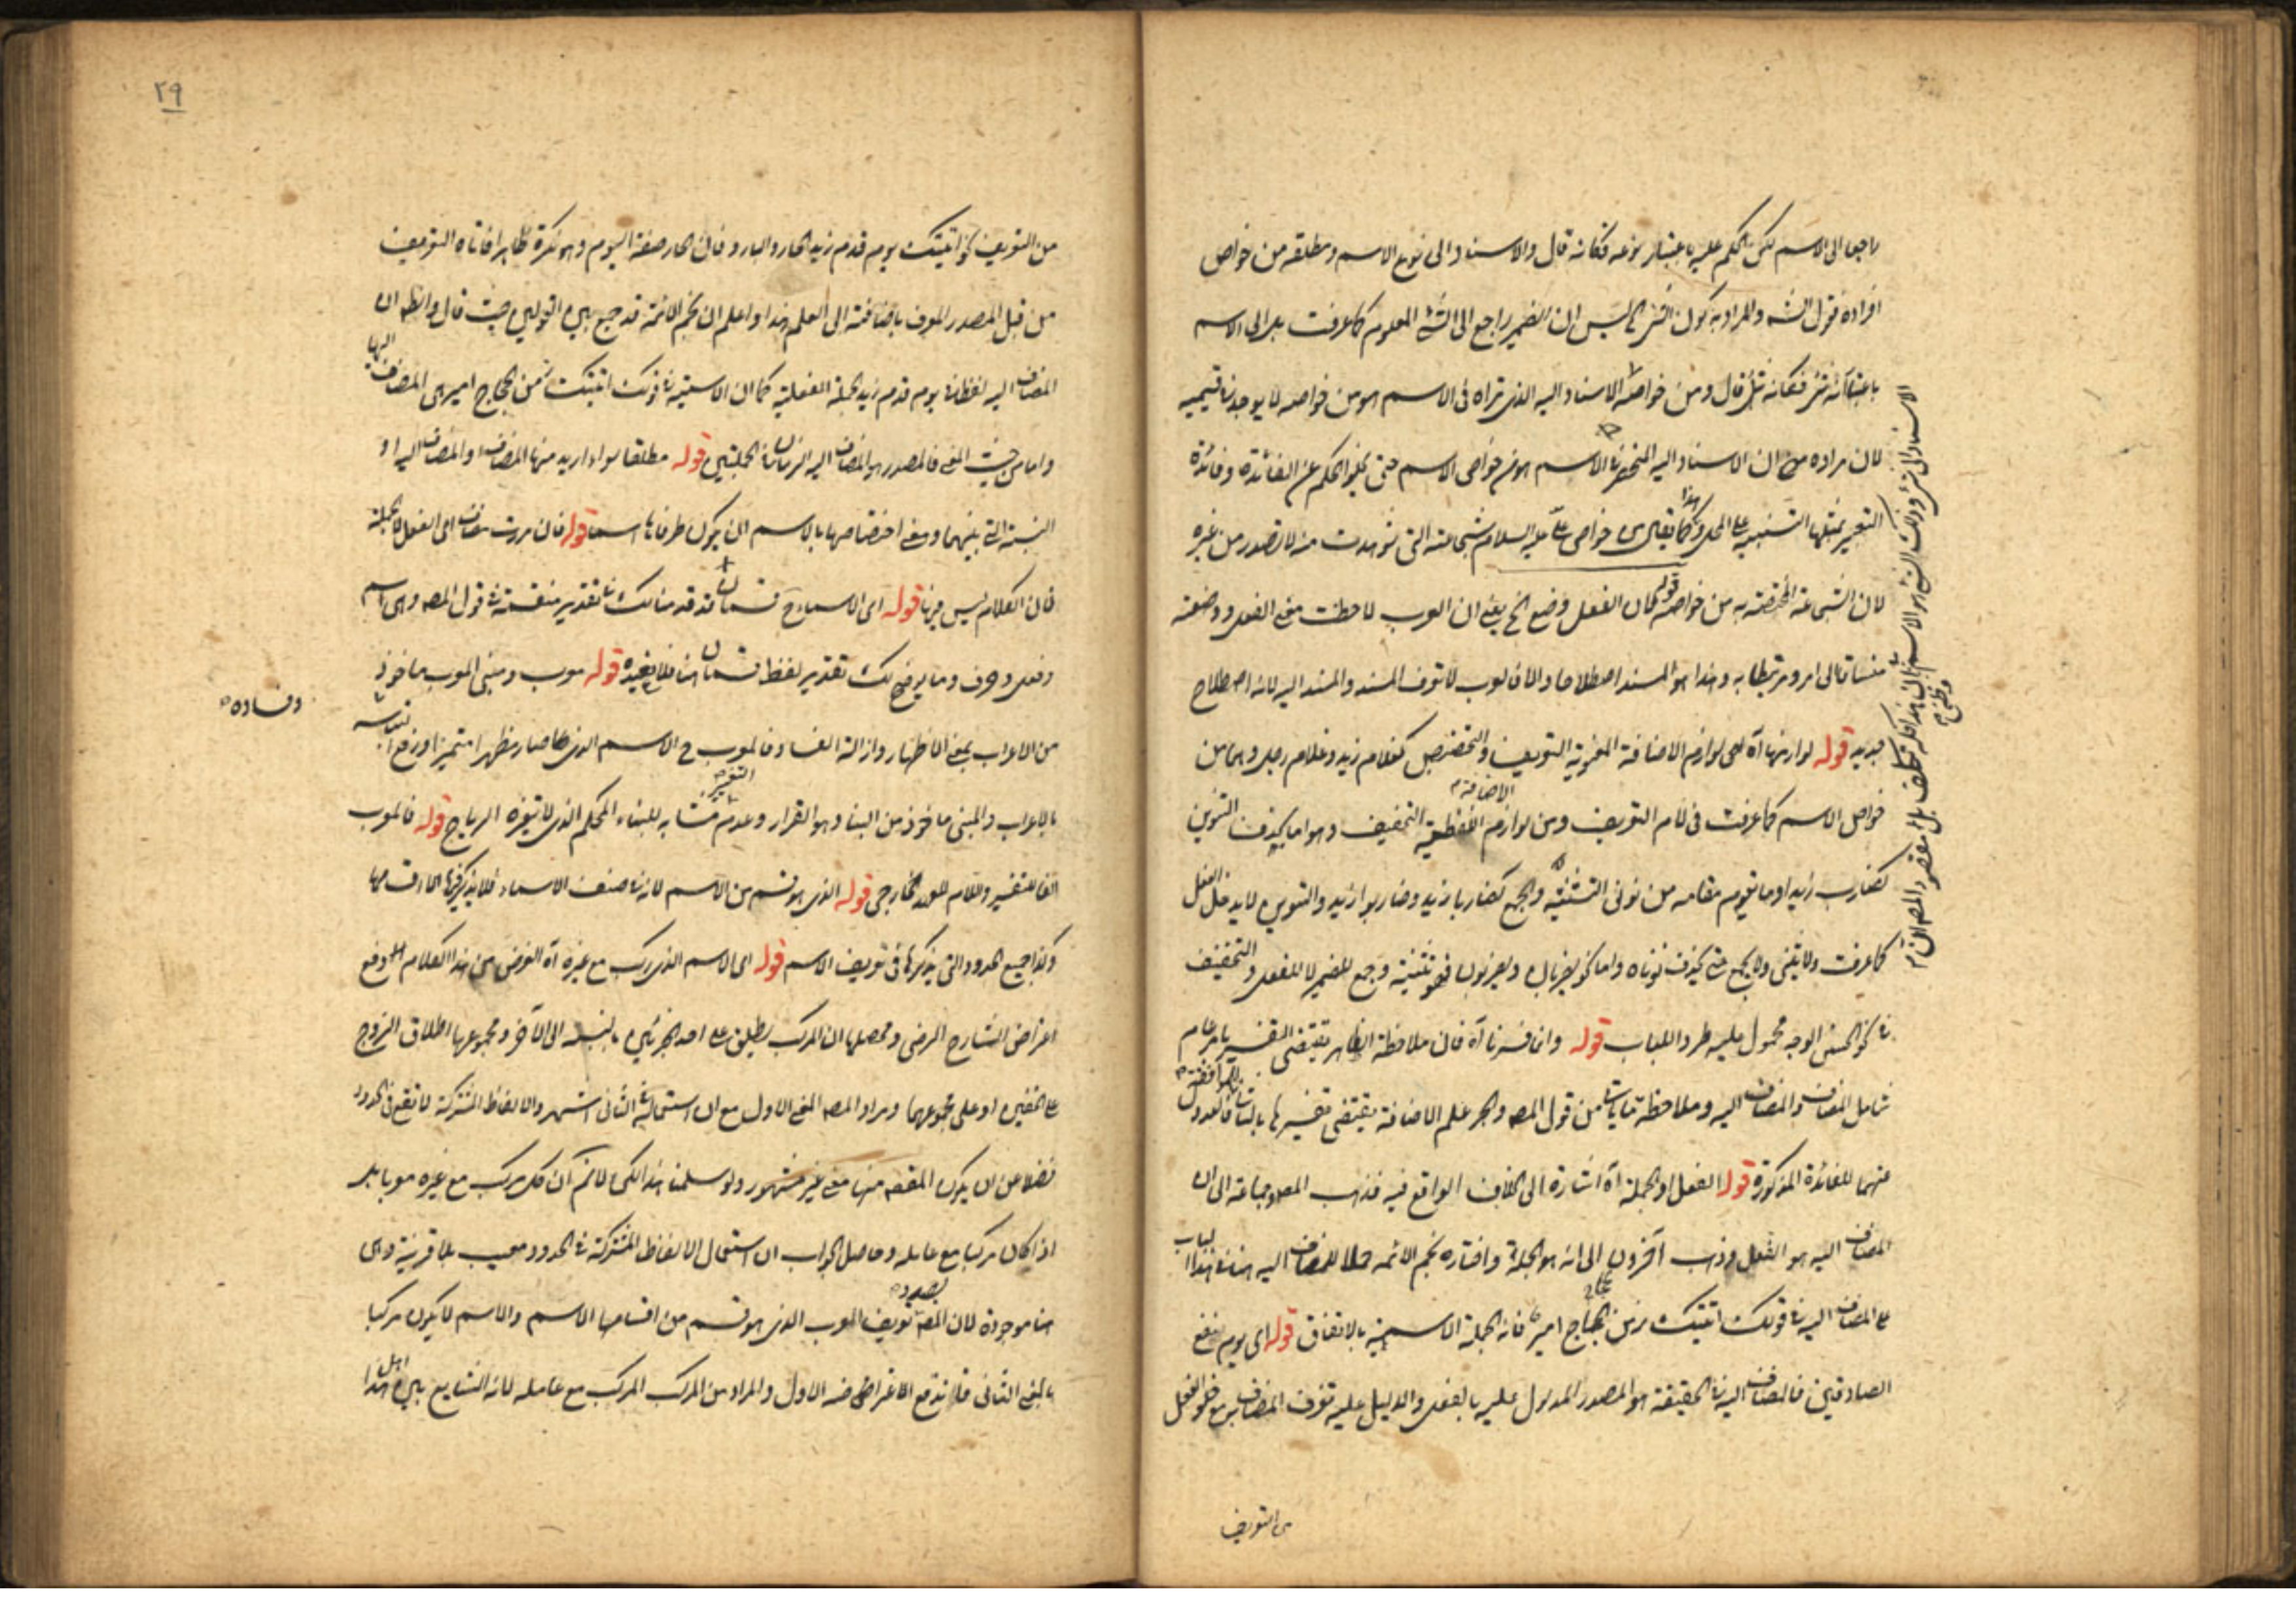 راجع الى الاسم لكن الحكم عليه باعتبار نوعه فكانه قال والاسناد الى نوع الاسم ومطلقه من خواص
افراده قوله الشه والمراد به كون الشئ الخ ليس ان الضمير راجع الى الشئ المعلوم كما عرفت بل الى الاسم
باعتبار انه شئ فكانه قال ومن خواصه الاسناد اليه الذى تراه فى الاسم هو من خواصه لا يوجد فى قسيميه
لان مراده من ان الاسناد اليه المتحقق فى الاسم هو من خواص الاسم حتى يخلو الحكم عن الفائدة وفائدة
التعبير بمثلها التنبيه على المحل وهذا كما يقال من خواص على عليه السلام شجاعته التى شوهدت منه لا تصدر من غيره
لان الشجاعة المختصة به من خواصه قوله لان الفعل وضع الخ يعنى ان العرب لاحظت معنى الفعل ووضعته
منساقا الى امر ومرتبطا به وهذا هو المسند اصطلاحا والا فالعرب لا تعرف المسند والمسند اليه لانه اصطلاح
جديد قوله لوازمها آه اى لوازم الاضافة المعنوية التعريف والتخصيص كغلام زيد وغلام رجل وهما من
خواص الاسم كما عرفت فى لام التعريف ومن لوازم الاضافة اللفظية التخفيف وهو اما بحذف التنوين
كضارب زيد او ما يقوم مقامه من نونى التثنية والجمع كضاربا زيد وضاربوا زيد والتنوين لا يدخل الفعل
كما عرفت ولا يثنى ولا يجمع حتى يحذف نوناه واما نحو يضربان ويضربون فهو تثنية وجمع للضمير لا للفعل والتخفيف
فى نحو الحسن الوجه محمول عليه طردا للباب قوله وانما فسرنا آه فان ملاحظة الظاهر يقتضى التفسير بامر عام
شامل المضاف والمضاف اليه وملاحظة من قول المصه والجر علم الاضافة يقتضى تفسيرها
عنهما للفائدة المذكورة قوله الفعل او الجملة آه اشارة الى الخلاف الواقع فيه فذهب المصه وجماعة الى ان
المضاف اليه هو الفعل وذهب آخرون الى انه هو الجملة واختاره نجم الائمه حملا للمضاف اليه فى هذا الباب
على المضاف اليه فى قولك اتيتك زمن الحجاج امير فانه الجملة الاسمية بالاتفاق قوله اى يوم نفع
الصادقين فالمضاف اليه فى الحقيقة هو المصدر المدلول عليه بالفعل والدليل عليه تعرف المضاف مع خلو الفعل
من التعريف
الاسناد الى شئ وذلك الشئ هو الاسم
من التعريف نحو اتيتك يوم قدم زيد الحار والبارد فان الحار صفة اليوم وهو نكرة ظاهرا فاتاه التعريف
من قبل المصدر المعرف باضافته الى العلم هذا واعلم ان نجم الائمة قد جمع بين القولين حيث قال والظه ان
المضاف اليه لفظا فى يوم قدم زيد الجملة الفعلية كما ان الاسمية فى قولك اتيتك زمن الحجاج امير هى المضاف اليها
واما من حيث المعنى فالمصدر هو المضاف اليه الزمان فى الجملتين قوله مطلقا سواء اريد منها المضاف او المضاف اليه او
النسبة التى بينهما ومعنى اختصاصها بالاسم ان يكون طرفاها اسما قوله فان مررت مضاف الى الفعل لا الجملة
فان الكلام ليس فيها قوله اى الاسماء قسمان قد قدمنا لك فى تقدير منقسمة فى قول المصه وهى اسم
وفعل وحرف وما يوضح لك تقدير لفظ قسمان هنا فلا نعيده قوله معرب ومبنى المعرب ماخوذ
من الاعراب بمعنى الاظهار وازالة الفساد فالمعرب ح الاسم الذى صار مظهرا متميزا ورفع التباسه وفساده
بالاعراب والمبنى ماخوذ من البناء وهو القرار وعدم التغير مشابه للبناء المحكم الذى لا يتغيره الرياح قوله فالمعرب
الفا للتفسير واللام للعهد الخارجى قوله الذى هو قسم من الاسم لانه فى صنف الاسماء فلا يذكر فيها الا
وكذا جميع الحدود التى يذكرها فى تعريف الاسم قوله اى الاسم الذى ركب مع غيره آه الغرض من هذا الكلام دفع
اعتراض الشارح الرضى ومحصله ان المركب يطلق على احد الجزئين بالنسبة الى الآخر ومجموعهما اطلاق الزوج
على الخفين او على مجموعهما ومراد المصه المعنى الاول مع ان استعماله فى الثانى اشهر والالفاظ المشتركة لا تقع فى الحدود
فضلا عن ان يكون المقصه منها معنى غير مشهور ولو سلمنا هذا لكن لا نم ان كل مركب مع غيره معربا بل
اذا كان مركبا مع عامله وحاصل الجواب ان استعمال الالفاظ المشتركة فى الحدود معيب بلا قرينة وهى
هنا موجودة لان المصه بصدد تعريف المعرب الذى هو قسم من اقسام الاسم والاسم لا يكون مركبا
بالمعنى الثانى فلا ندفع الاعتراض منه الاول والمراد من المركب المركب مع عامله لانه الشايع بين اهل هذا
٢٩